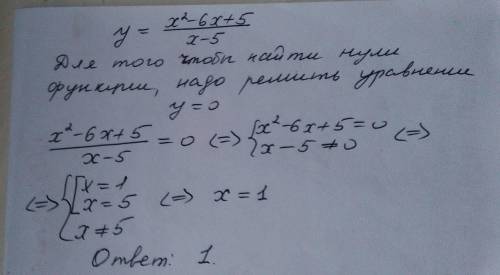 y = \frac{x²-6x+5}{x-5}
Для того чтобы найти нули
функции, надо решить уравнение
y=0
\frac{x²-6x+5}{x-5} = 0 <=> { x²-6x+5=0 x-5≠0 <=>
<=> { [ x=1 x=5 x≠5 <=> x=1
Ответ: 1.